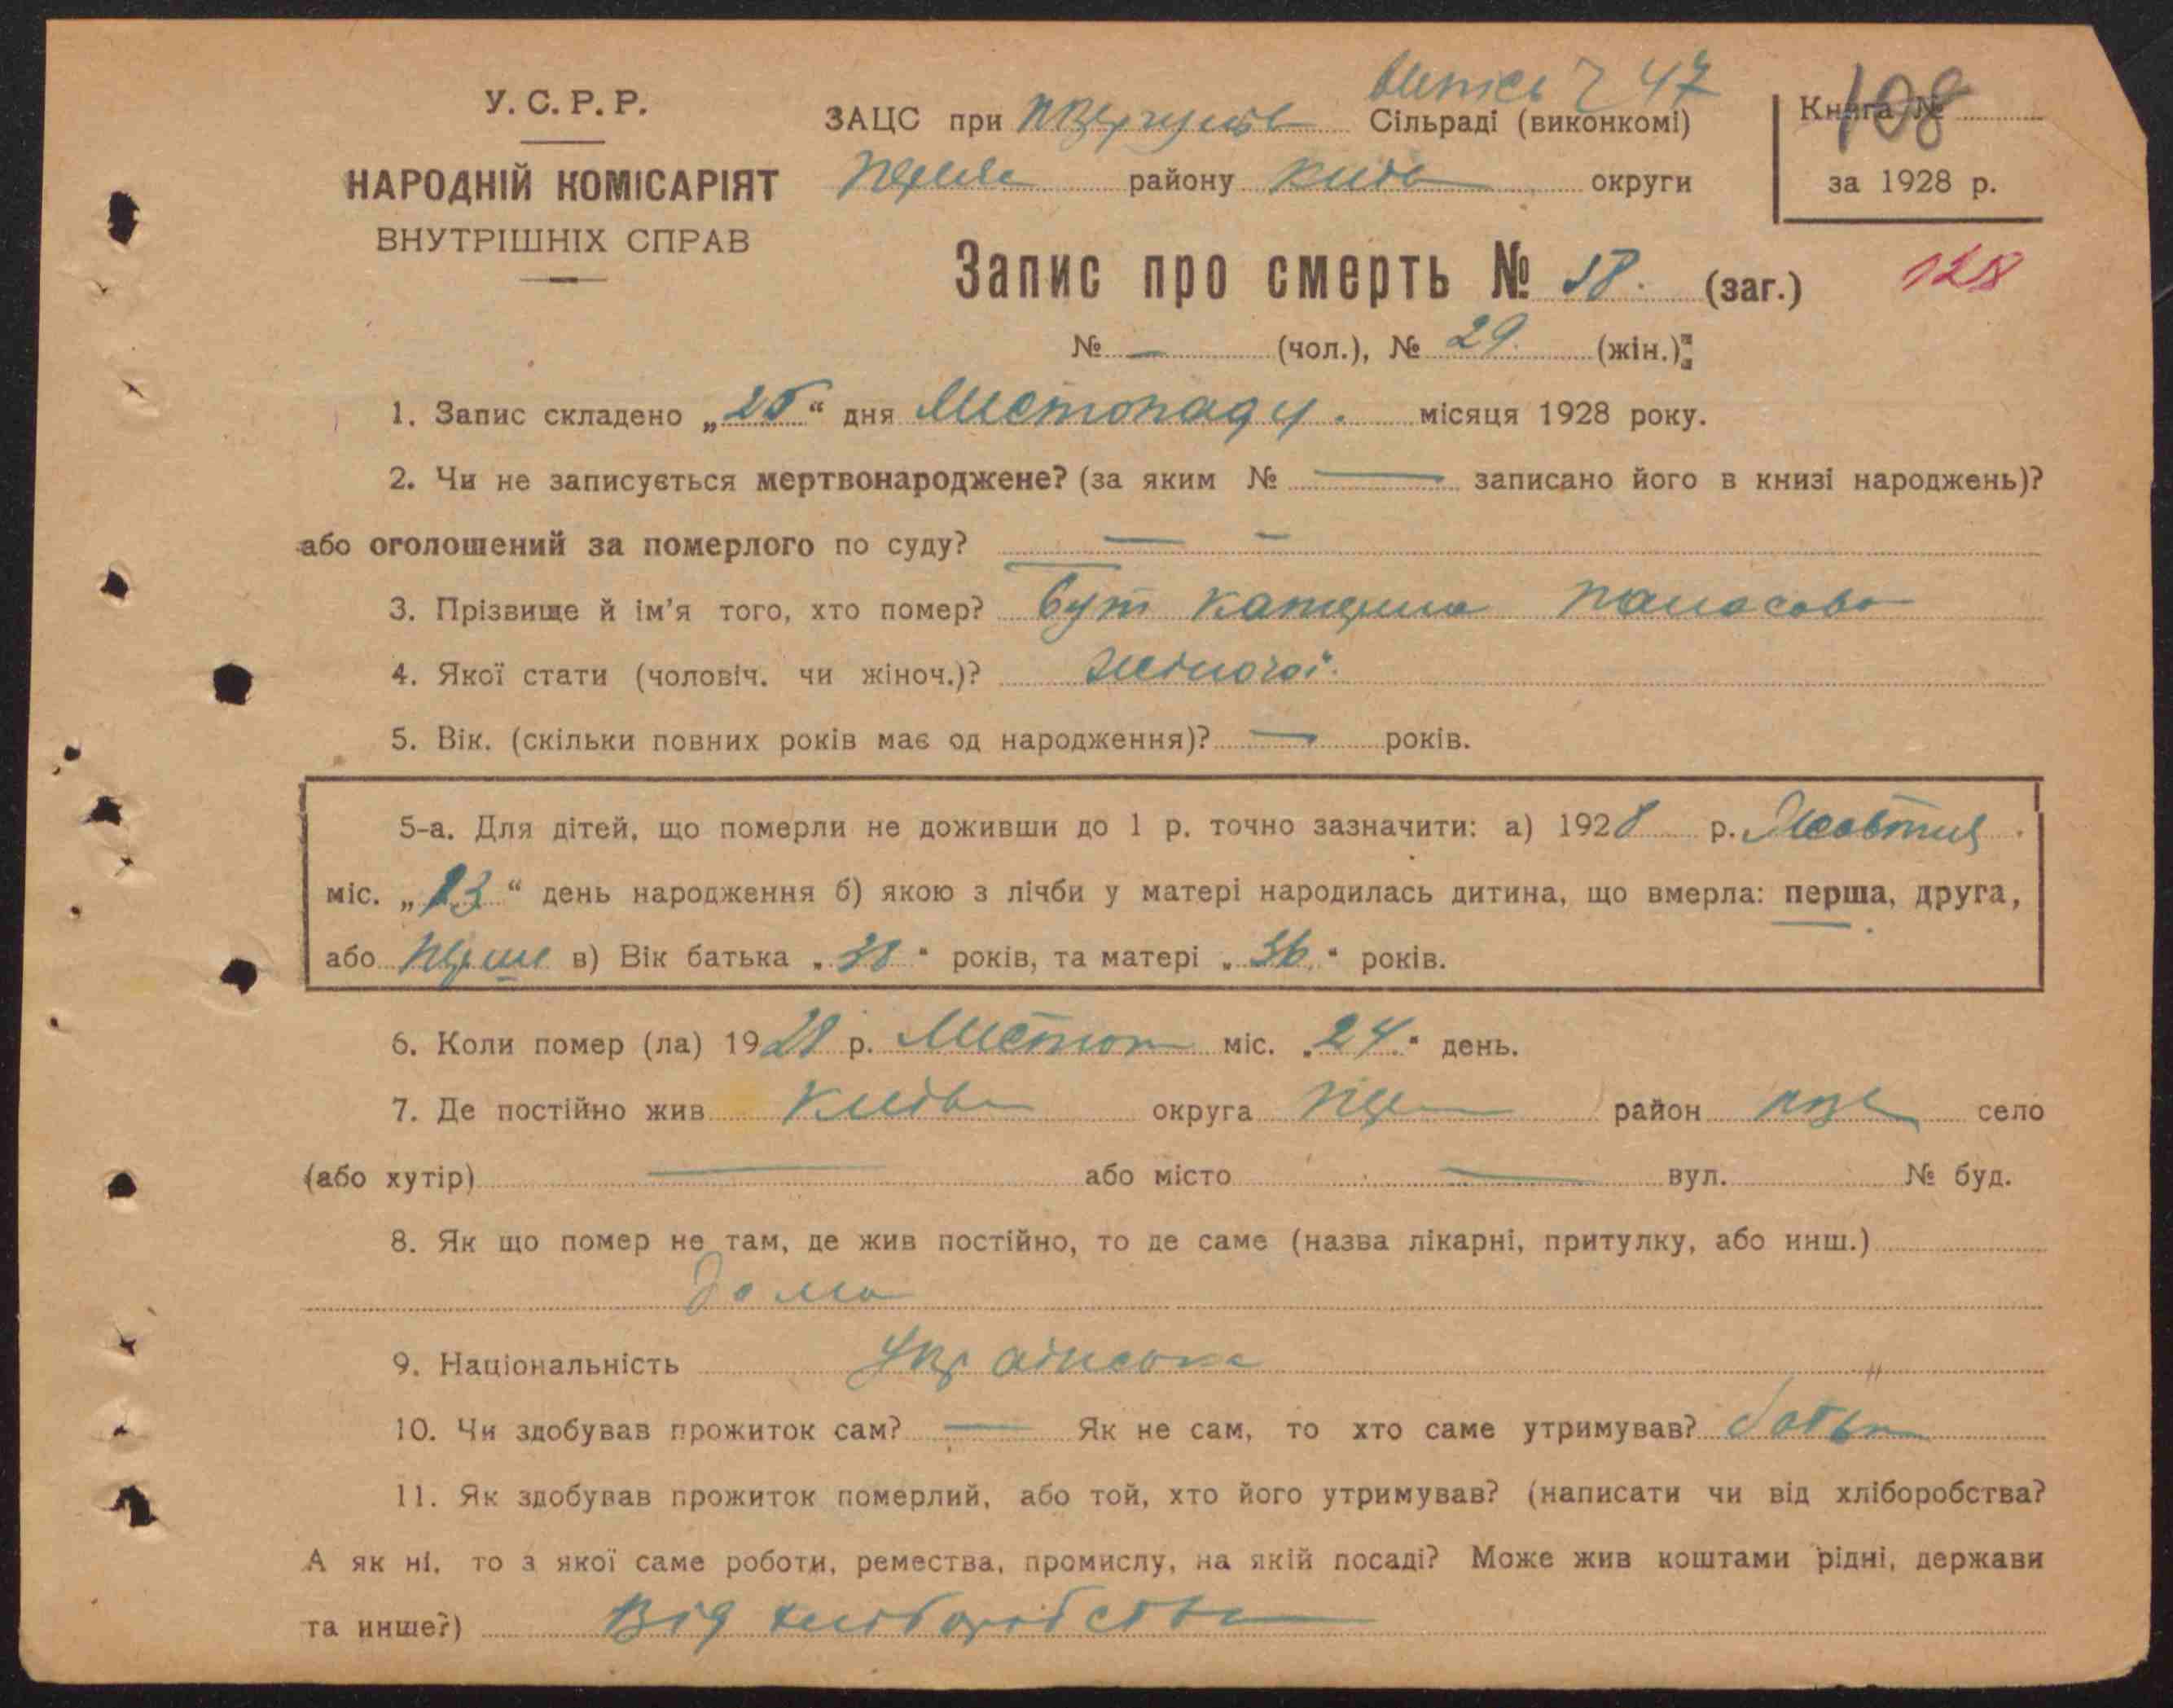 У. С. Р. Р.
НАРОДНІЙ КОМІСАРІЯТ
ВНУТРІШНІХ СПРАВ
47
ЗАЦС при Сільраді (виконкомі)
району Київ округи
Книга №
108
за 1928 р.
Запис про смерть № 58. (заг.)
128
№ — (чол.), № 29. (жін.)
1. Запис складено „25“ дня Листопаду. місяця 1928 року.
2. Чи не записується мертвонароджене? (за яким № — записано його в книзі народжень)?
або оголошений за померлого по суду? — —
3. Прізвище й ім'я того, хто помер? Бут Катерина Панасова
4. Якої стати (чоловіч. чи жіноч.)? жіночої.
5. Вік. (скільки повних років має од народження)? — років.
5-а. Для дітей, що померли не доживши до 1 р. точно зазначити: а) 1928 р. Жовтня
міс. „23“ день народження б) якою з лічби у матері народилась дитина, що вмерла: перша, друга,
або перше в) Вік батька „38“ років, та матері „36“ років.
6. Коли помер (ла) 1928 р. Листоп міс. „24.“ день.
7. Де постійно жив Київ округа Пер район село
(або хутір) — або місто — вул. № буд.
8. Як що помер не там, де жив постійно, то де саме (назва лікарні, притулку, або инш.)
Дома
9. Національність Українська
10. Чи здобував прожиток сам? — Як не сам, то хто саме утримував? батьки
11. Як здобував прожиток померлий, або той, хто його утримував? (написати чи від хліборобства?
А як ні, то з якої саме роботи, ремества, промислу, на якій посаді? Може жив коштами рідні, держави
та инше?) Від хліборобства